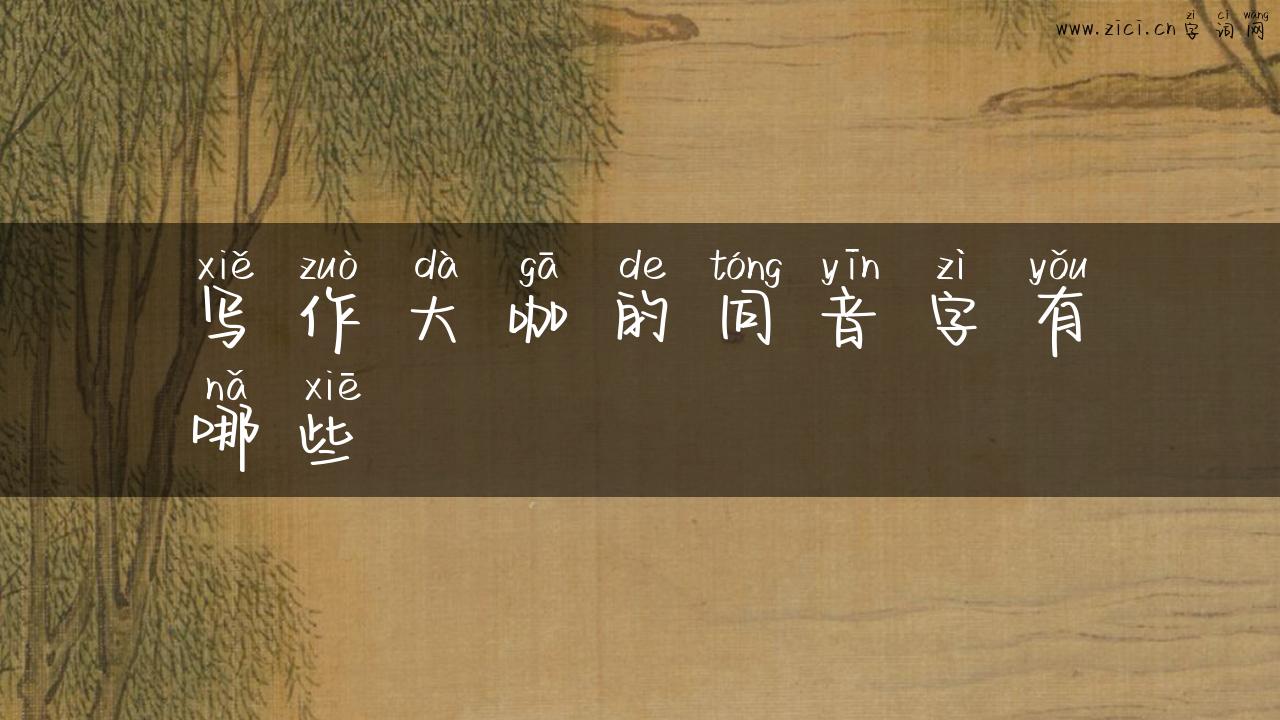 zì cí wǎng
www.zici.cn 字词网
xiě zuò dà gā de tóng yīn zì yǒu
写作大咖的同音字有
nǎ xiē
哪些